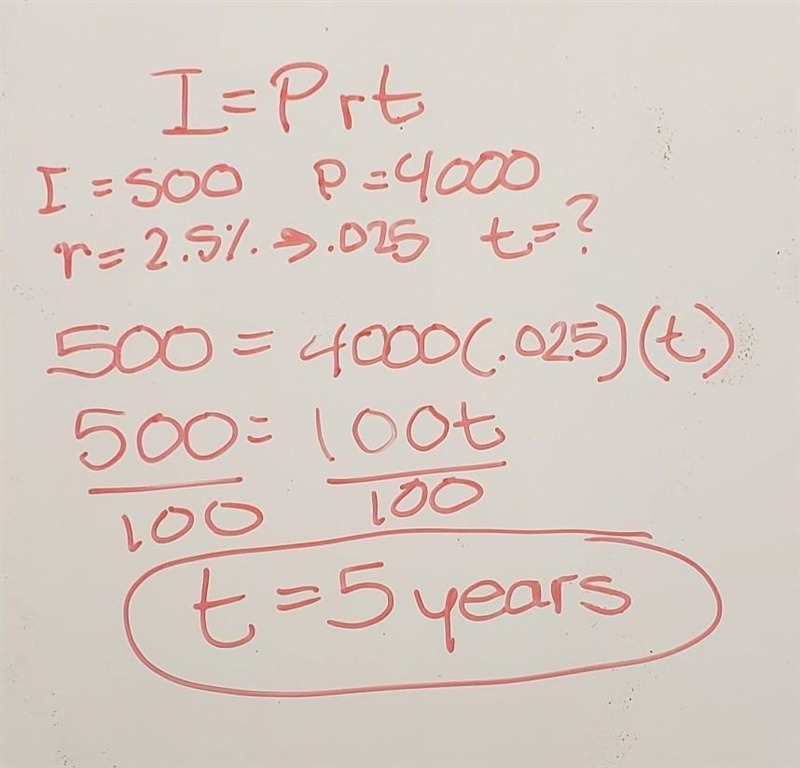 I = Prt
I = 500 P = 4000
r = 2.5% → .025 t = ?
500 = 4000(.025)(t)
500 = 100t
100 100
t = 5 years